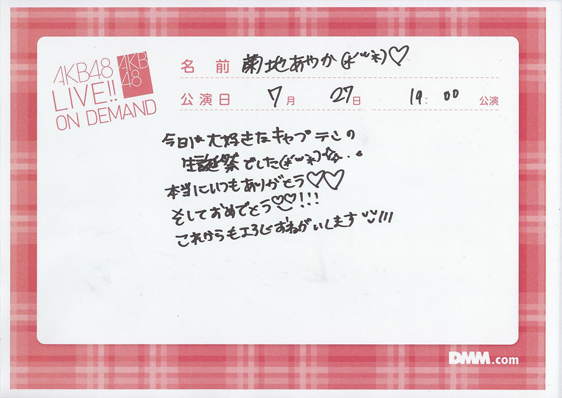 AKB48
LIVE!!
ON DEMAND
AKB
48
名前 菊地あやか(*´`*)♡
公演日 7月 27日 19:00 公演
今日は大好きなキャプテンの
生誕祭でした(*´`*)☆...
本当にいつもありがとう♡♡
そしておめでとう♡♡!!!
これからもよろしくおねがいします!!!
DMM.com